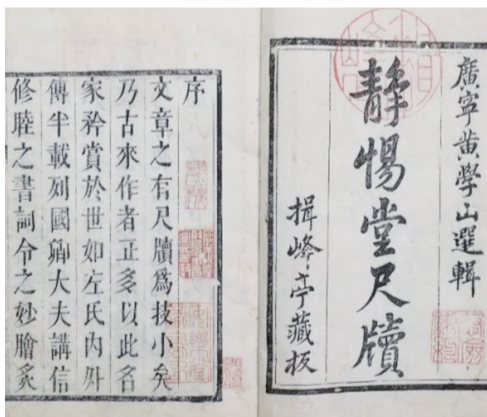 廣寧黄學山選輯
靜惕堂尺牘
揖峰亭藏板
序
文章之有尺牘爲技小矣
乃古來作者正多以此名
家矜賞於世如左氏內外
傳半載列國卿大夫講信
修睦之書詞令之妙膾炙